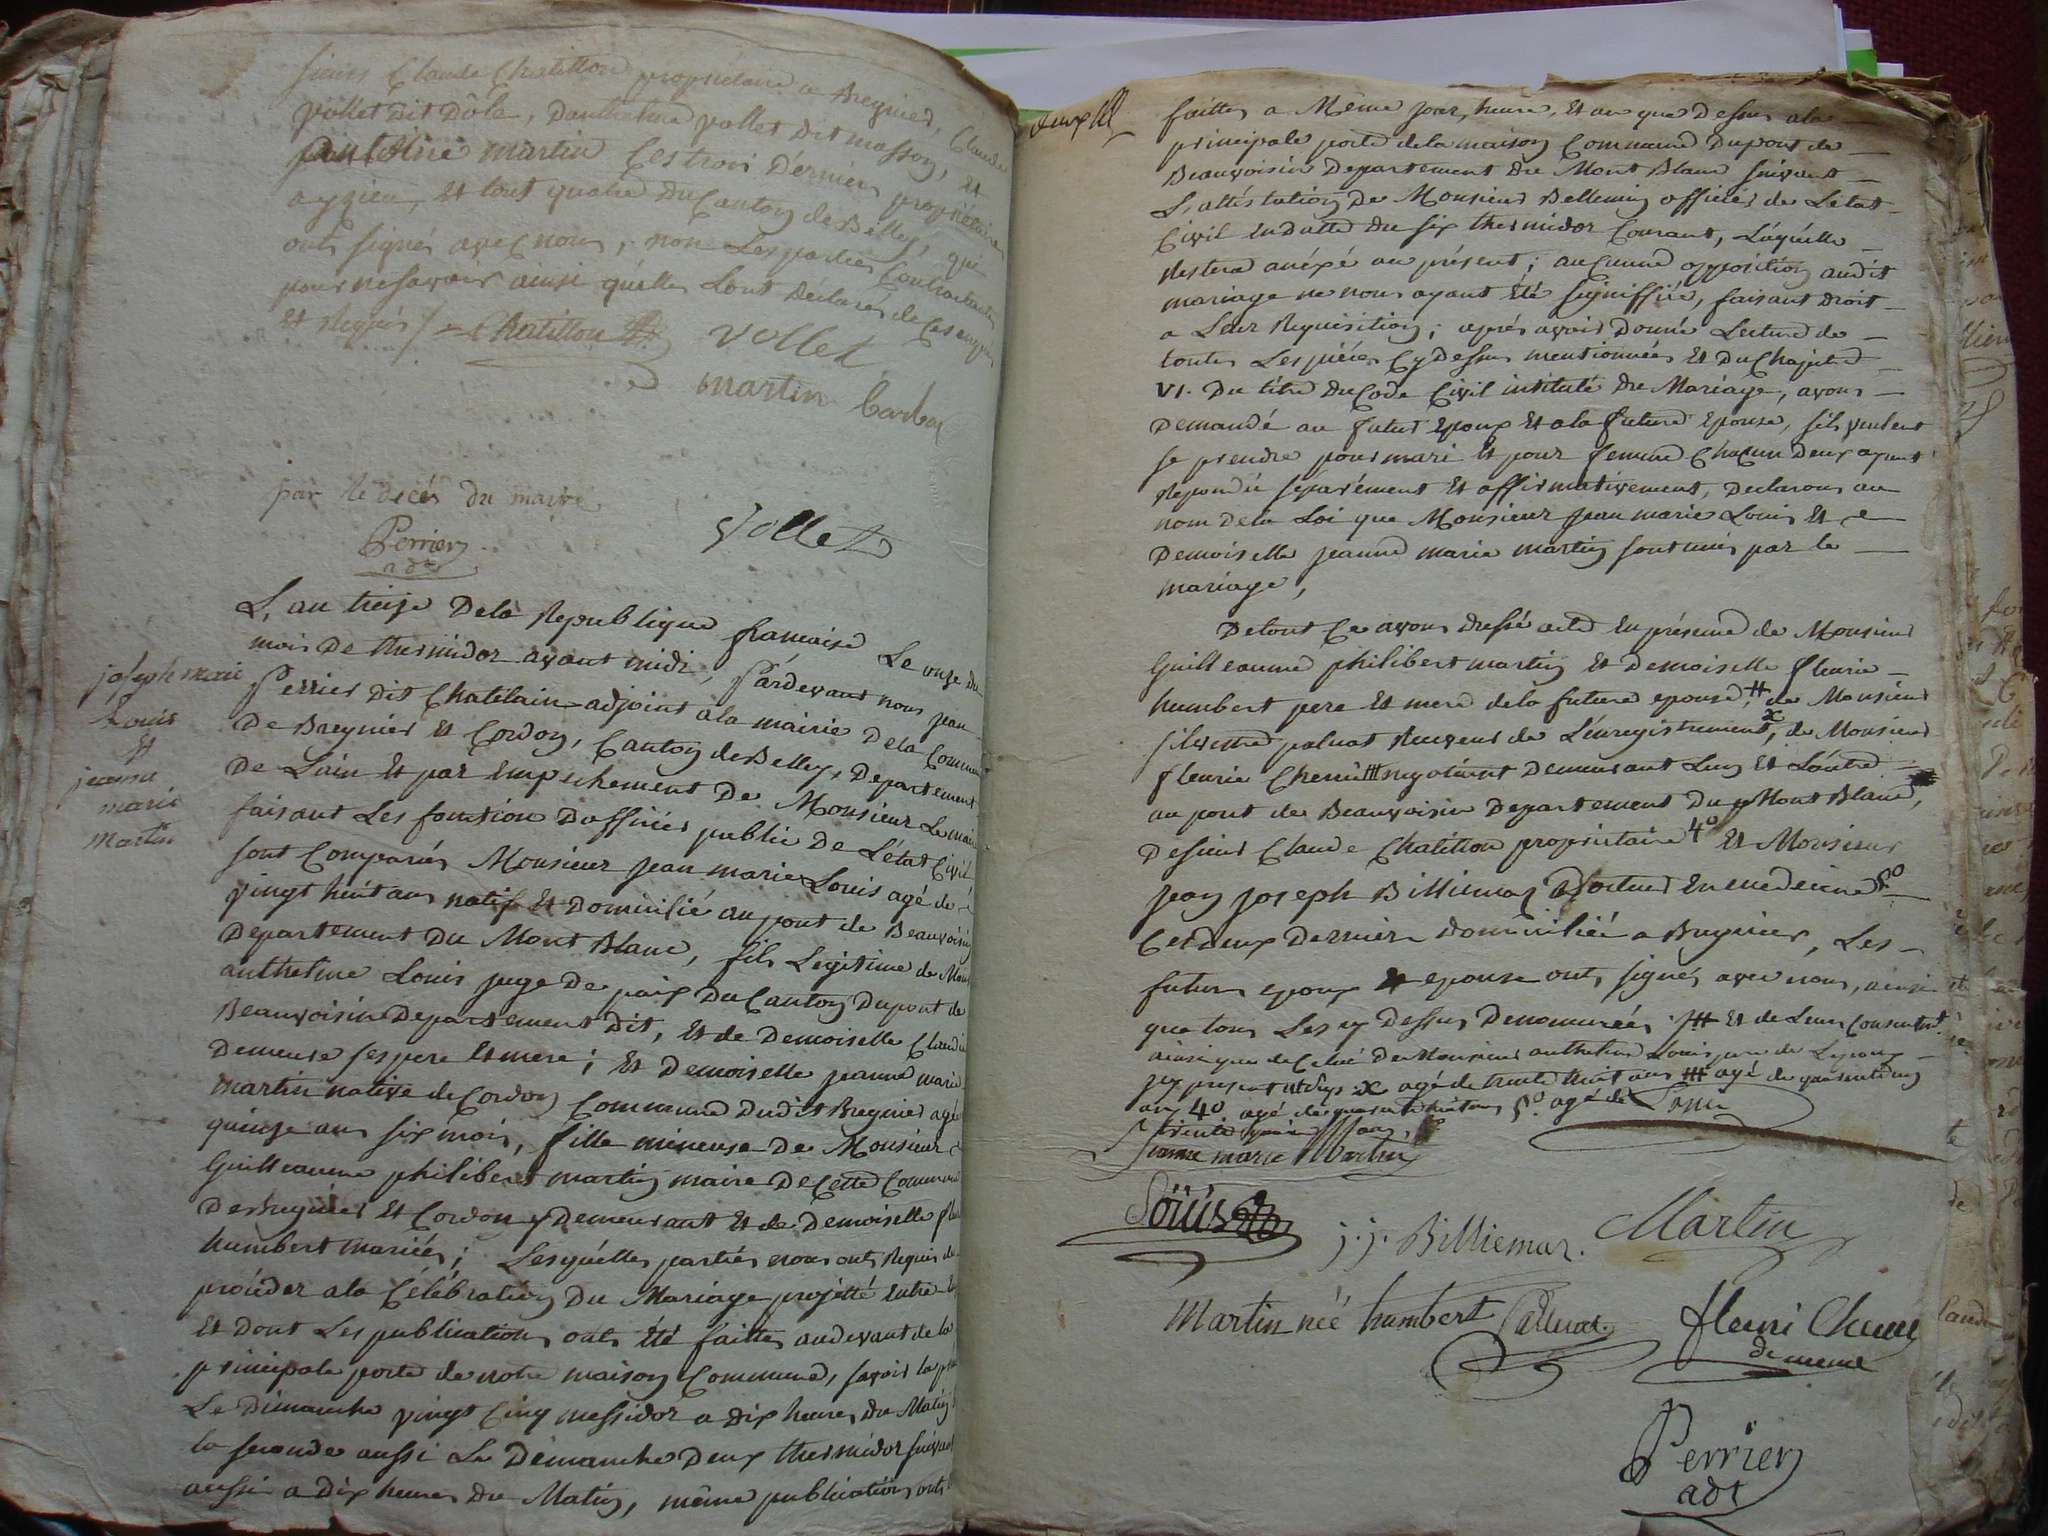 sieurs Claude Chatillon propriétaire a Bregnier, Claude
vollet dit Dôle, Danthelme vollet dit masson, Et
martin Ces trois Derniers propriétaires
a ygieu, Et tout quatre du Canton de Belley, qui
onts signés avec nous, non Les parties Contractantes
pour ne savoir ainsi quelles Lont déclarés de Ces enquis
Et Requis /
Chatillon vollet
martin barbar
par le décés du maire
Perrier
adt
vollet
L, an treize De la Republique francaise Le onze du
mois De thermidor avant midi, Pardevant nous jean
Perrier dit Chatelain adjoint a la mairie De la Commune
De Bregnier Et Cordon, Canton de Belley, Departement
De Lain Et par Empechement De Monsieur Le maire
faisant Les fonction Dofficier public De Létat Civil
sont Comparûs Monsieur jean marie Louis agé de
vingt huit ans natif Et Domicilié au pont de Beauvoisin
Departement Du Mont Blanc, fils Legitime de Mons
anthelme Louis juge De paix Du Canton Dupont de
Beauvoisin Departement Dit, Et de Demoiselle Claudi
Demeure ses pere Et mere; Et Demoiselle jeanne marie
martin native de Cordon Commune Dudit Bregnier agée
quinze ans six mois, fille mineuse De Monsieur
Guilleaume philibert martin maire De Cette Commune
De Bregnier Et Cordon y Demeurant Et de Demoiselle fl
humbert mariées; Lesquélles partiés nous onts Requis de
procéder a la Célébration Du Mariage projetté Entre
Et Dont Les publication onts Été faittes audevant de la
principale porte de notre maison Commune, savoir la p
Le Dimanche vingt Cinq messidor a dix heures du Matin
la seconde aussi Le Dimanche Deux thermidor suivant
aussi a Dix heures du Matin, même publication onts
joseph marie
Louis
Et
jeanne
marie
martin
faittes a Même jour, heure, Et an que Dessus a la
principale porte de la maison Commune Dupont de
Beauvoisin Departement du Mont Blanc suivant
L, attéstation De Monsieur Bellemin officier de Létat
Civil En datte du six thermidor Courant, Laquélle
Restera anéxé au présent; aucunne opposition audit
mariage ne nous ayant Été signiffiée, faisant droit
a Leur Requisition; aprés avoir Donné Lecture de
toutes Les piéces Cy Dessus mentionnées Et Du Chapitre
VI. Du titre du Code Civil intitulé du Mariage, avons
Demandé au futur Epoux Et a la future Epouse, sils veulent
se prendre pour mari Et pour femme Chacun Deux ayant
Repondu separément Et affirmativement, Declarons au
nom De la Loi que Monsieur jean marie Louis Et
Demoiselle jeanne marie martin sont unis par le
mariage,
De tout Ce avons dressé acte En présence de Monsieur
Guilleaume philibert martin Et Demoiselle fleurie
humbert pere Et mere de la future epouse, # de Monsieur
silvestre paluat Receveur de Lénregistrement, x de Monsieur
fleurie Chenu # negotiant Demeurant Lun Et Lautre
au pont de Beauvoisin Departement Du Mont Blanc,
De sieur Claude Chatillon propriétaire 4° Et Monsieur
jean joseph Billiemaz Docteur En medecine 5°
Ces deux Derniers domiciliés a Bregnier, Les
futurs epoux Et epouse onts signés avec nous, ainsi
que tous Les cy Dessus Denommés # Et de Leur Consentemt
ainsi que de Celui De Monsieur anthelme Louis pere de Lepoux
x agé de trente huit ans # agé de quarante cinq
ans 4° agé de quarante huit ans 5° agé de
trente
Louis
jeanne marie Martin
Loüis j. j. Billiemaz. Martin
Martin née humbert Palluat fleuri Chenu
Perrier
adt